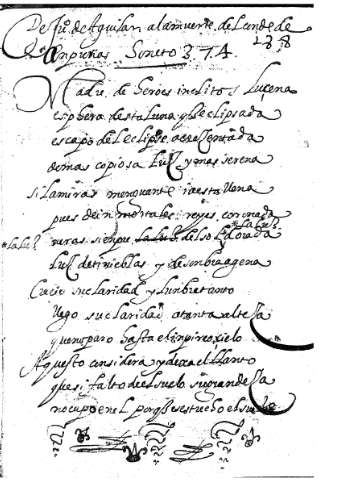 De Ju.o de Aguilar a la muerte de Conde de
Anpurias Soneto 374. 288
Madre de Heroes inclitos Luçena
esphera desta luna ya eclipsada
escapo del eclipse acreçentada
de mas copiosa luz y mas serena
Si la miras menguante ia esta llena
pues de inmortales reyes coronada
*la luz veras sienpre la luz del sol dorada *la luz
luz de tinieblas y de sonbra agena
Crecio su claridad y lunbre tanto
llego su claridad a tanta alteza
que no paro hasta el inpireo çielo
Aquesto considera y dexa el llanto
que si falto del suelo su grandeza
no cupo en el porq es estrecho el suelo